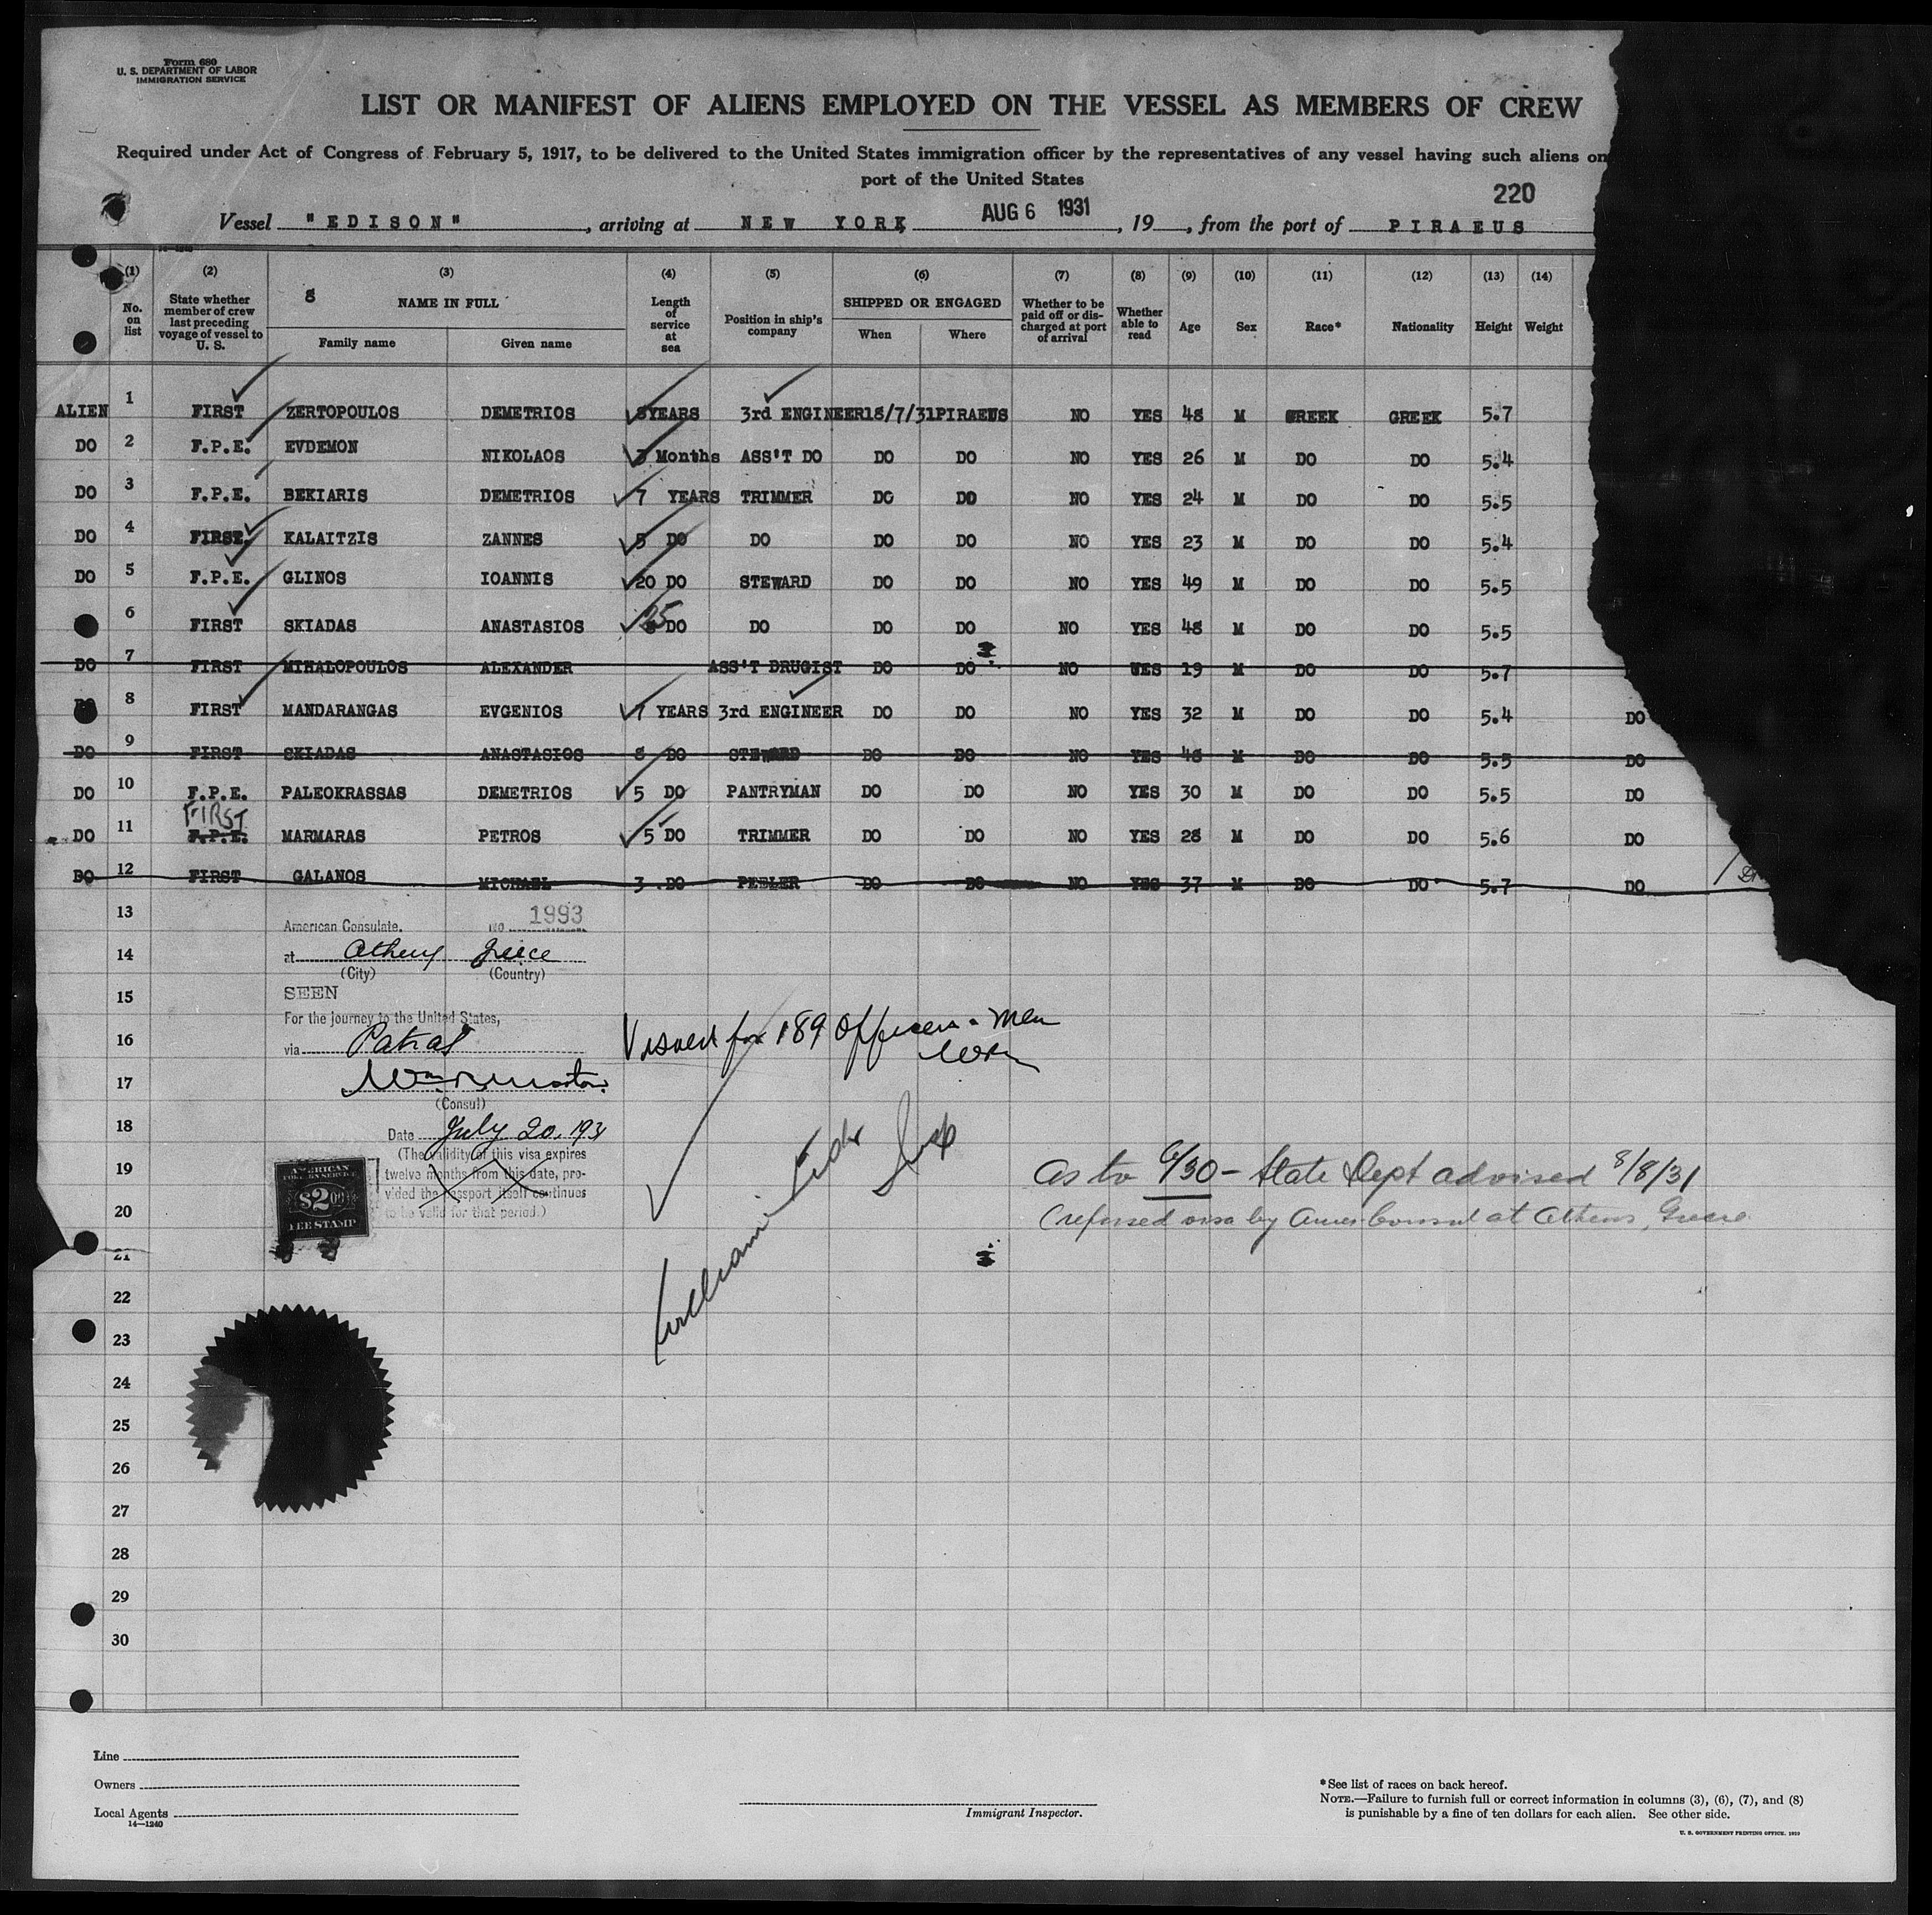 Form 680
U. S. DEPARTMENT OF LABOR
IMMIGRATION SERVICE
LIST OR MANIFEST OF ALIENS EMPLOYED ON THE VESSEL AS MEMBERS OF CREW
Required under Act of Congress of February 5, 1917, to be delivered to the United States immigration officer by the representatives of any vessel having such aliens on
port of the United States
220
Vessel "EDISON", arriving at NEW YORK, AUG 6 1931, 19, from the port of PIRAEUS
(1) (2) (3) (4) (5) (6) (7) (8) (9) (10) (11) (12) (13) (14)
No. on list
State whether member of crew last preceding voyage of vessel to U. S.
8 NAME IN FULL
Family name Given name
Length of service at sea
Position in ship's company
SHIPPED OR ENGAGED
When Where
Whether to be paid off or discharged at port of arrival
Whether able to read
Age Sex Race* Nationality Height Weight
ALIEN 1 FIRST ZERTOPOULOS DEMETRIOS 8YEARS 3rd ENGINEER18/7/31PIRAEUS NO YES 48 M GREEK GREEK 5.7
DO 2 F.P.E. EVDEMON NIKOLAOS 3 Months ASS'T DO DO DO NO YES 26 M DO DO 5.4
DO 3 F.P.E. BEKIARIS DEMETRIOS 7 YEARS TRIMMER DO DO NO YES 24 M DO DO 5.5
DO 4 FIRST. KALAITZIS ZANNES 5 DO DO DO DO NO YES 23 M DO DO 5.4
DO 5 F.P.E. GLINOS IOANNIS 20 DO STEWARD DO DO NO YES 49 M DO DO 5.5
6 FIRST SKIADAS ANASTASIOS 25 DO DO DO DO NO YES 48 M DO DO 5.5
DO 7 FIRST MIHALOPOULOS ALEXANDER ASS'T DRUGIST DO DO NO YES 19 M DO DO 5.7
DO 8 FIRST MANDARANGAS EVGENIOS 7 YEARS 3rd ENGINEER DO DO NO YES 32 M DO DO 5.4 DO
DO 9 FIRST SKIADAS ANASTASIOS 8 DO STEWARD DO DO NO YES 48 M DO DO 5.5 DO
DO 10 F.P.E. PALEOKRASSAS DEMETRIOS 5 DO PANTRYMAN DO DO NO YES 30 M DO DO 5.5 DO
FIRST
DO 11 F.P.E. MARMARAS PETROS 5 DO TRIMMER DO DO NO YES 28 M DO DO 5.6 DO
DO 12 FIRST GALANOS MICHAEL 3 DO PEELER DO DO NO YES 37 M DO DO 5.7 DO
13
American Consulate, No 1993
14 at Athens Greece
(City) (Country)
15 SEEN
For the journey to the United States,
16 via Patras
Visaed for 189 Officers & Men
17
(Consul)
18 Date July 20, 1931
(The validity of this visa expires
19 twelve months from this date, pro-
vided the passport itself continues
20 to be valid for that period.)
AMERICAN
FOREIGN SERVICE
$2.00
FEE STAMP
William Insp
As to 6/30 - State Dept advised 8/8/31
(refused visa by Amer. Consul at Athens, Greece
21
22
23
24
25
26
27
28
29
30
Line
Owners
Local Agents
14—1240
Immigrant Inspector.
*See list of races on back hereof.
NOTE.—Failure to furnish full or correct information in columns (3), (6), (7), and (8)
is punishable by a fine of ten dollars for each alien. See other side.
U. S. GOVERNMENT PRINTING OFFICE.